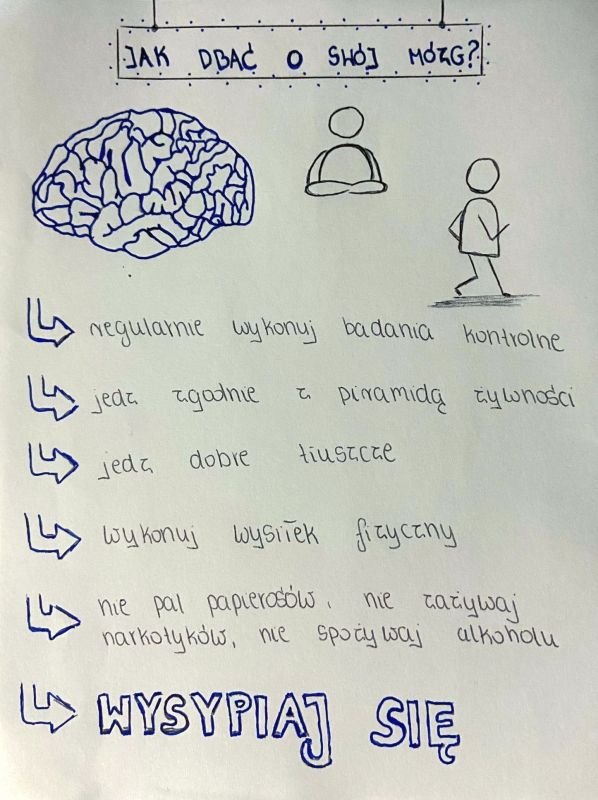 JAK DBAĆ O SWÓJ MÓZG?
regularnie wykonuj badania kontrolne
jedz zgodnie z piramidą żywności
jedz dobre tłuszcze
wykonuj wysiłek fizyczny
nie pal papierosów, nie zażywaj
narkotyków, nie spożywaj alkoholu
WYSYPIAJ SIĘ